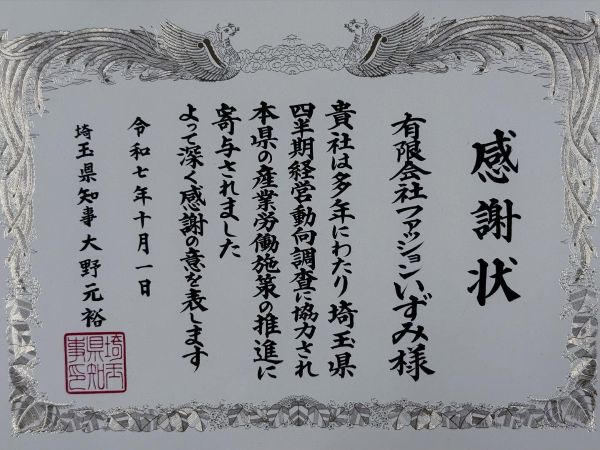 感謝状
有限会社ファッションいずみ様
貴社は多年にわたり埼玉県
四半期経営動向調査に協力され
本県の産業労働施策の推進に
寄与されました
よって深く感謝の意を表します
令和七年十月一日
埼玉県知事 大野元裕
埼玉
県知
事印